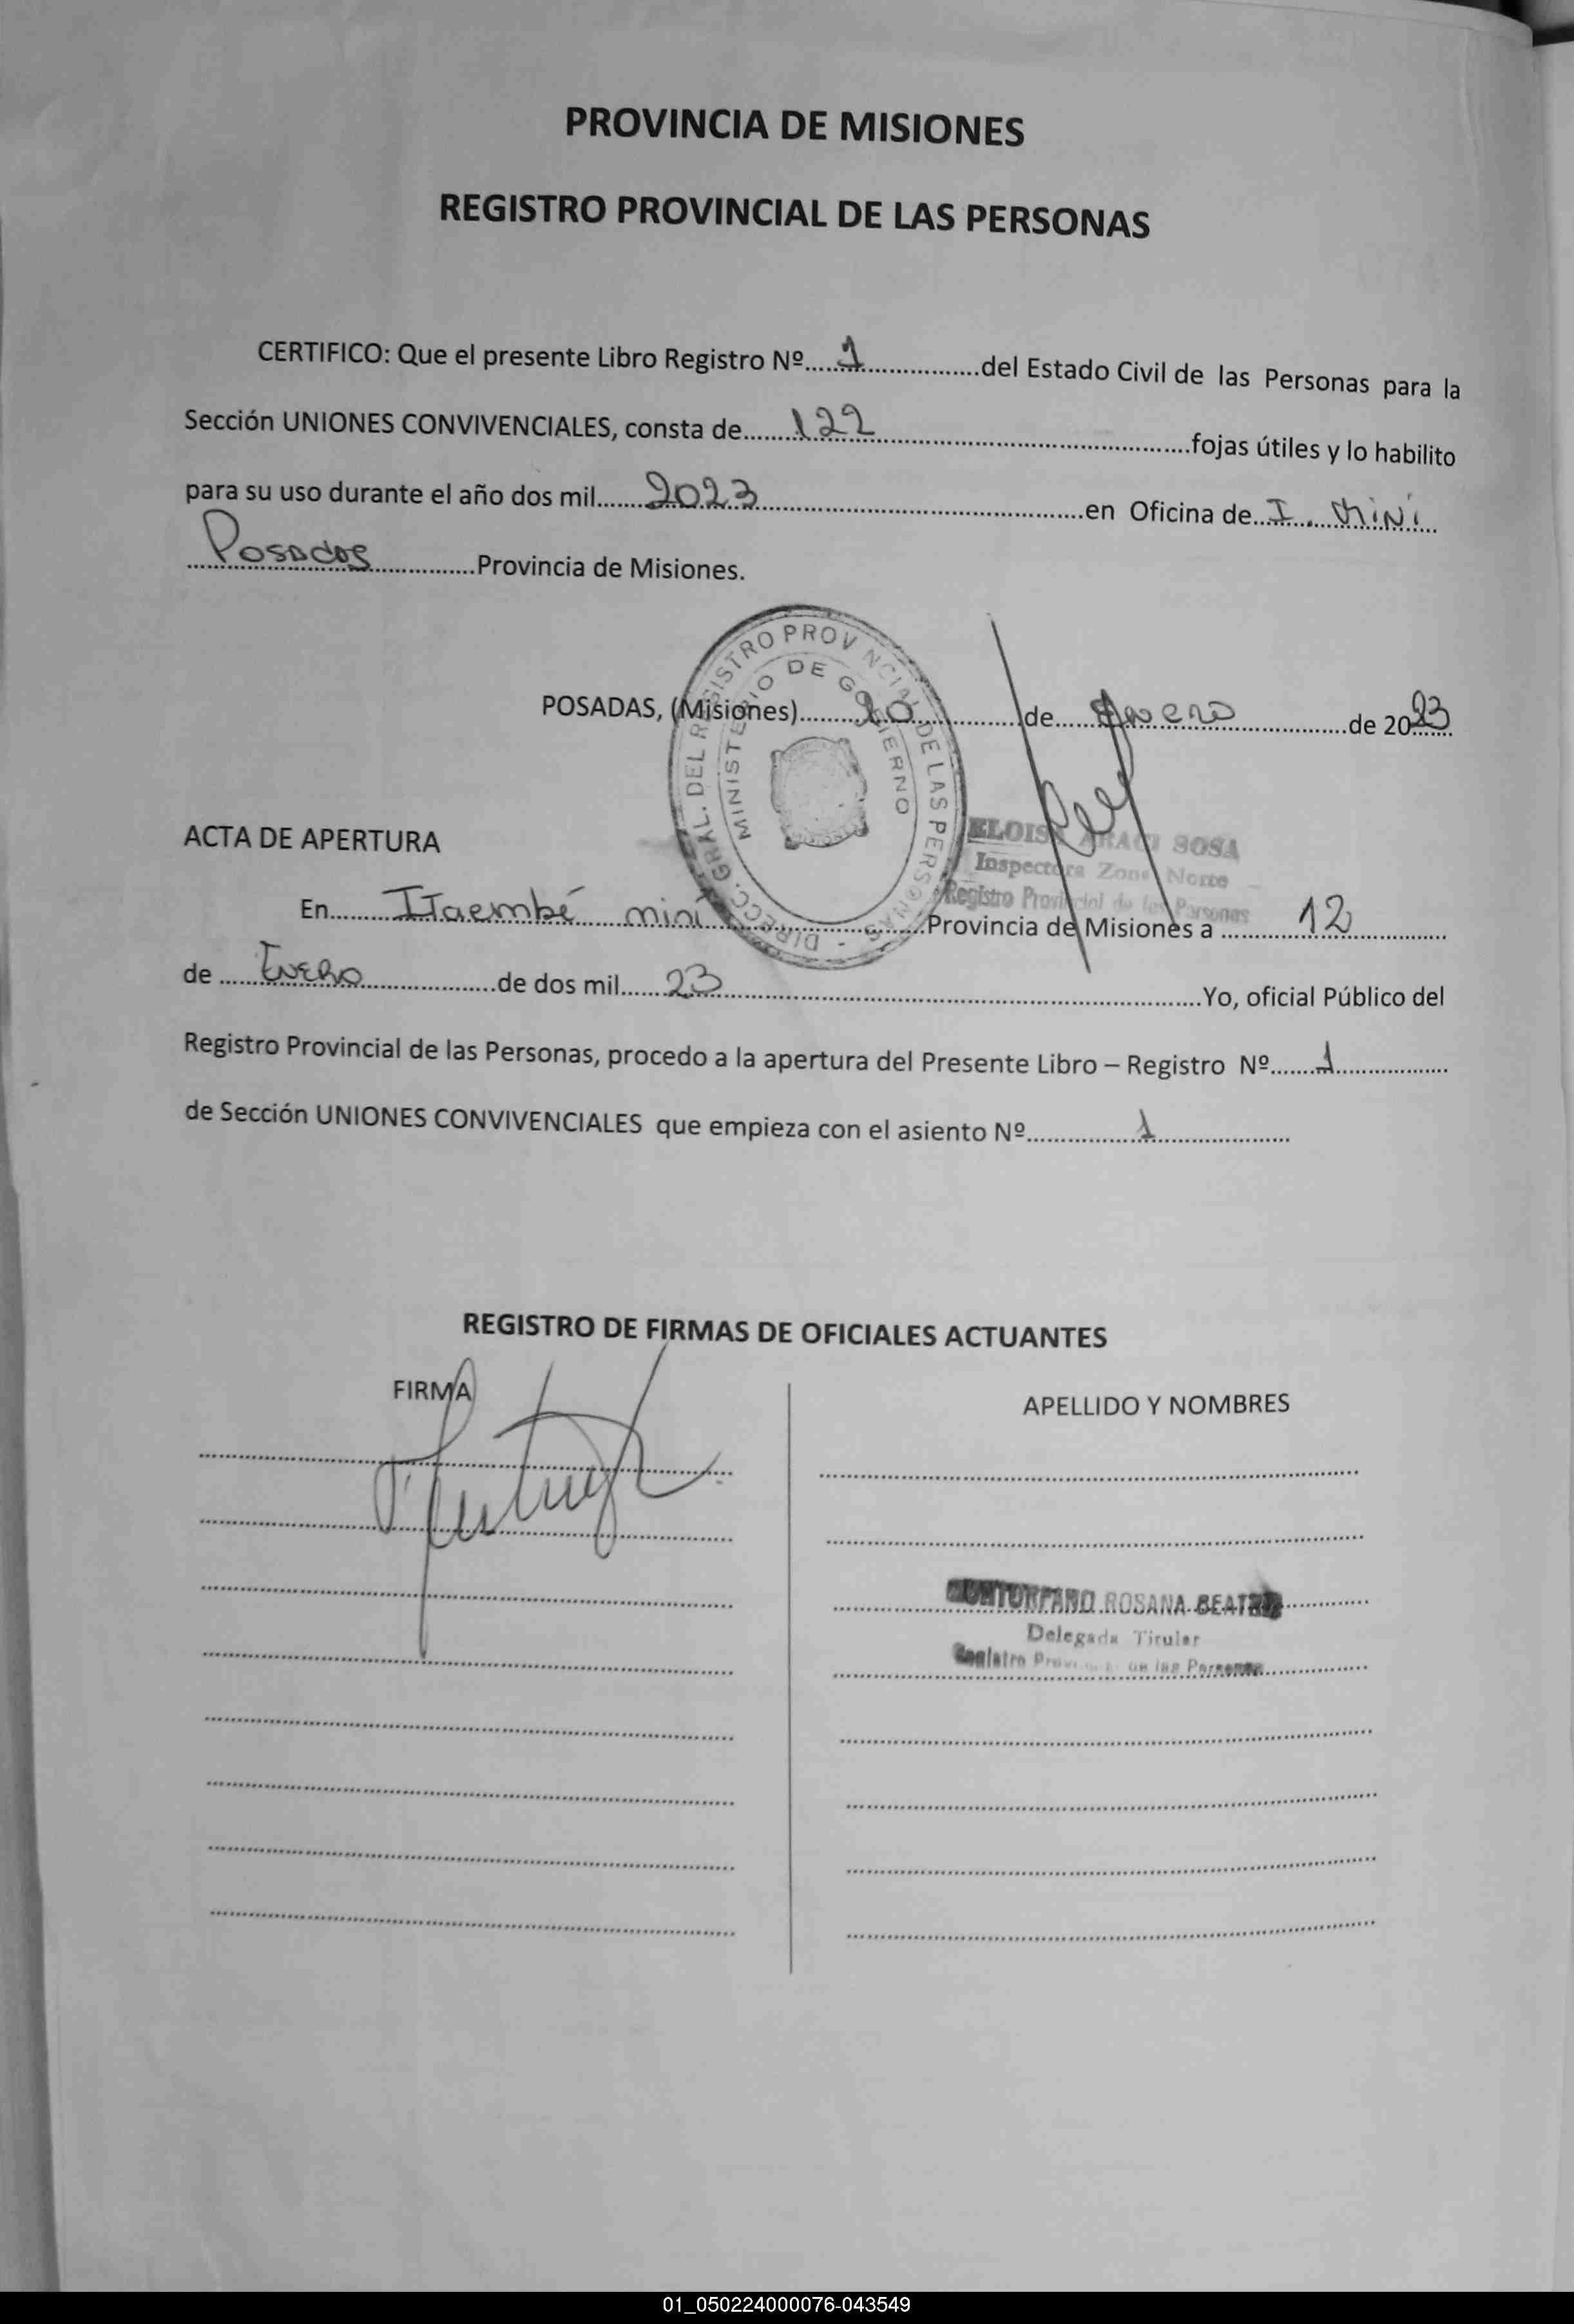 PROVINCIA DE MISIONES
REGISTRO PROVINCIAL DE LAS PERSONAS
CERTIFICO: Que el presente Libro Registro Nº.....1.....del Estado Civil de las Personas para la
Sección UNIONES CONVIVENCIALES, consta de.....122.....fojas útiles y lo habilito
para su uso durante el año dos mil.....2023.....en Oficina de...I. Mini
Posadas.....Provincia de Misiones.
DIRECC. GRAL. DEL REGISTRO PROVINCIAL DE LAS PERSONAS -
MINISTERIO DE GOBIERNO
POSADAS, (Misiones).....10.....de.....Enero.....de 2023
ELOISA ARACI SOSA
Inspectora Zona Norte
Registro Provincial de las Personas
ACTA DE APERTURA
En.....Itaembé mini.....Provincia de Misiones a.....12.....
de.....Enero.....de dos mil.....23.....Yo, oficial Público del
Registro Provincial de las Personas, procedo a la apertura del Presente Libro – Registro Nº.....1.....
de Sección UNIONES CONVIVENCIALES que empieza con el asiento Nº.....1.....
REGISTRO DE FIRMAS DE OFICIALES ACTUANTES
FIRMA
APELLIDO Y NOMBRES
ROSANA BEATRIZ
Delegada Titular
Registro Provincial de las Personas
01_050224000076-043549